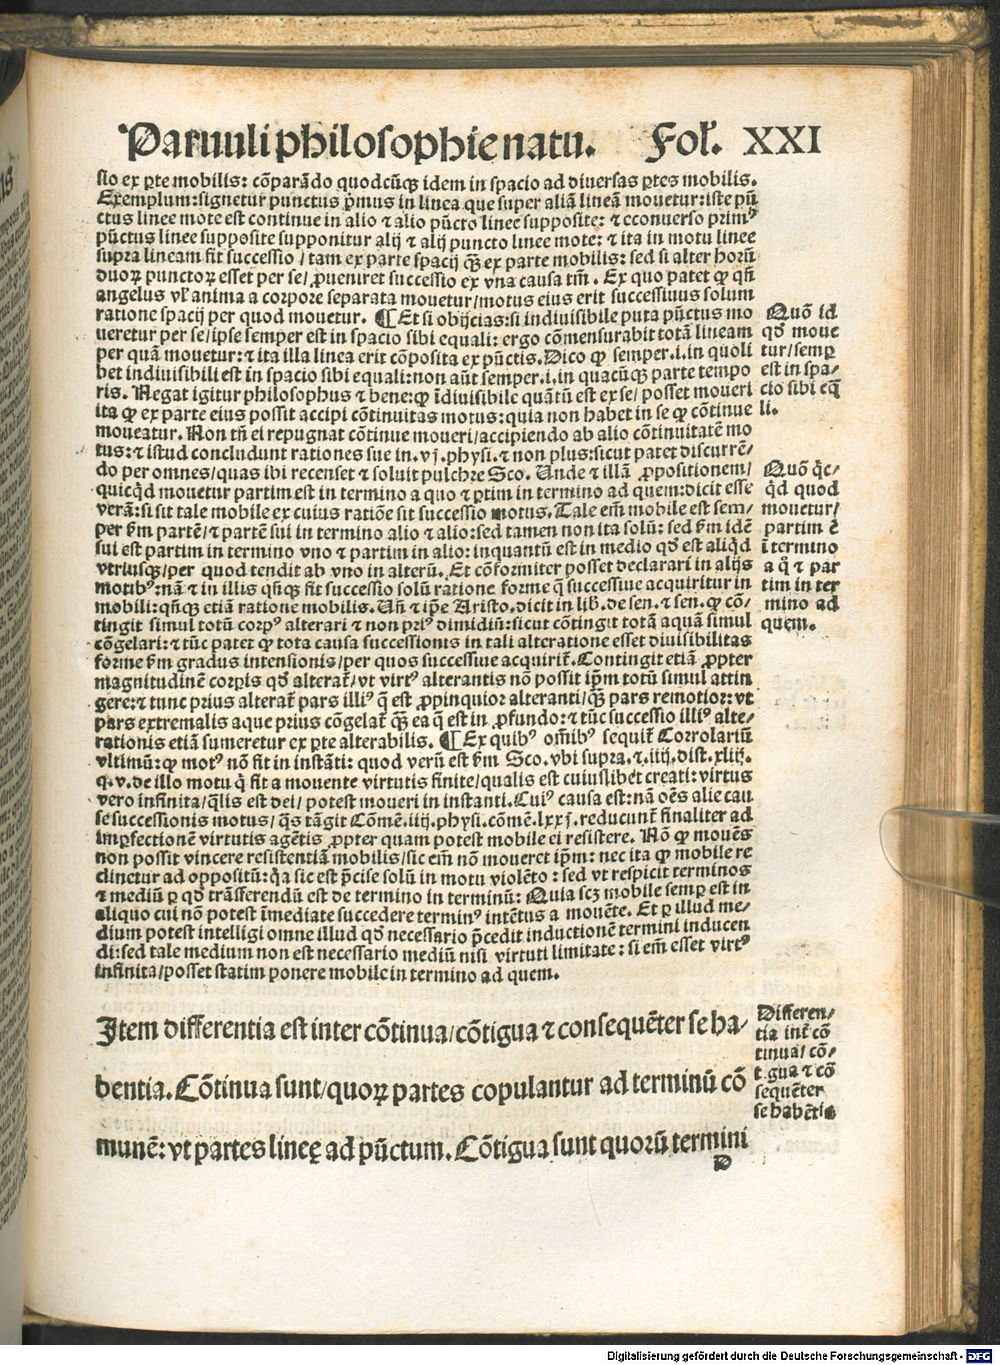 Paruuli philosophie natu. Fol'. XXI
sio ex ꝑte mobilis: cōparādo quodcūqꝫ idem in spacio ad diuersas ꝑtes mobilis.
Exemplum: signetur punctus p̄mus in linea que super aliā lineā mouetur: iste pū
ctus linee mote est continue in alio ⁊ alio pūcto linee supposite: ⁊ econuerso primꝰ
pūctus linee supposite supponitur alij ⁊ alij puncto linee mote: ⁊ ita in motu linee
supra lineam fit successio / tam ex parte spacij qꝫ̄ ex parte mobilis: sed si alter horū
duoꝝ punctoꝝ esset per se / ꝓueniret successio ex vna causa tm̄. Ex quo patet ꝙ qn̄
angelus vl' anima a corpore separata mouetur / motus eius erit successiuus solum
ratione spacij per quod mouetur. ¶ Et si obijcias: si indiuisibile puta pūctus mo
ueretur per se / ipse semper est in spacio sibi equali: ergo cōmensurabit totā lineam
per quā mouetur: ⁊ ita illa linea erit cōposita ex pūctis. Dico ꝙ semper .i. in quoli
bet indiuisibili est in spacio sibi equali: non aūt semper .i. in quacūqꝫ parte tempo
ris. Negat igitur philosophus ⁊ bene: ꝙ īdiuisibile quātū est ex se / posset moueri
ita ꝙ ex parte eius possit accipi cōtinuitas motus: quia non habet in se ꝙ cōtinue
moueatur. Non tn̄ ei repugnat cōtinue moueri / accipiendo ab alio cōtinuitatē mo
tus: ⁊ istud concludunt rationes sue in .vj. physi. ⁊ non plus: sicut patet discurrē⸗
do per omnes / quas ibi recenset ⁊ soluit pulchre Sco. Unde ⁊ illā ꝓpositionem /
quicq̇d mouetur partim est in termino a quo ⁊ ꝑtim in termino ad quem: dicit esse
verā: si sit tale mobile ex cuius ratiōe sit successio motus. Tale em̄ mobile est sem⸗
per ẜm partē / ⁊ partē sui in termino alio ⁊ alio: sed tamen non ita solū: sed ẜm idē
sui est partim in termino vno ⁊ partim in alio: inquantū est in medio qd̄ est aliq̇d
vtriusqꝫ / per quod tendit ab vno in alterū. Et cōformiter posset declarari in alijs
motibꝰ: nā ⁊ in illis qn̄qꝫ fit successio solū ratione forme q̄ successiue acquiritur in
mobili: qn̄qꝫ etiā ratione mobilis. Un̄ ⁊ ip̄e Aristo. dicit in lib. de sen. ⁊ sen. ꝙ cō⸗
tingit simul totū corpꝰ alterari ⁊ non priꝰ dimidiū: sicut cōtingit totā aquā simul
cōgelari: ⁊ tūc patet ꝙ tota causa successionis in tali alteratione esset diuisibilitas
forme ẜm gradus intensionis / per quos successiue acquirit̄. Contingit etiā ꝓpter
magnitudinē corꝑis qd̄ alterat̄ / vt virtꝰ alterantis nō possit ip̄m totū simul attin
gere: ⁊ tunc prius alterat̄ pars illiꝰ q̄ est ꝓpinquior alteranti / qꝫ̄ pars remotior: vt
pars extremalis aque prius cōgelat̄ qꝫ̄ ea q̄ est in ꝓfundo: ⁊ tūc successio illiꝰ alte⸗
rationis etiā sumeretur ex ꝑte alterabilis. ¶ Ex quibꝰ om̄ibꝰ sequit̄ Corrolariū
vltimū: ꝙ motꝰ nō fit in instāti: quod verū est ẜm Sco. vbi supra. ⁊ .iiij. dist. xliij.
q. v. de illo motu q̄ fit a mouente virtutis finite / qualis est cuiuslibet creati: virtus
vero infinita / q̄lis est dei / potest moueri in instanti. Cuiꝰ causa est: nā oēs alie cau
se successionis motus / q̄s tāgit Cōmē. iiij. physi. cōmē. lxxj. reducunt̄ finaliter ad
imꝑfectionem virtutis agētis ꝓpter quam potest mobile ei resistere. Nō ꝙ mouēs
non possit vincere resistentiā mobilis / sic em̄ nō moueret ip̄m: nec ita ꝙ mobile re
clinetur ad oppositū: q̇a sic est p̄cise solū in motu violēto: sed vt respicit terminos
⁊ mediū ꝑ qd̄ trāsferendū est de termino in terminū: Quia scꝫ mobile semꝑ est in
aliquo cui nō potest īmediate succedere terminꝰ intētus a mouēte. Et ꝑ illud me⸗
dium potest intelligi omne illud qd̄ necessario p̄cedit inductionē termini inducen
di: sed tale medium non est necessario mediū nisi virtuti limitate: si em̄ esset virtꝰ
infinita / posset statim ponere mobile in termino ad quem.
Item differentia est inter cōtinua / cōtigua ⁊ consequēter se ha⸗
bentia. Cōtinua sunt / quoꝝ partes copulantur ad terminū cō
munē: vt partes lineę ad pūctum. Cōtigua sunt quorū termini
D
Quō id
qd̄ moue
tur / semꝑ
est in spa⸗
cio sibi eq̄
li.
Quō q̇c⸗
q̇d quod
mouetur /
partim ē
ī termino
a q̊ ⁊ par
tim in ter
mino ad
quem.
Differen⸗
tia int̄ cō
tinua / cō⸗
tigua ⁊ cō
sequēter
se habētia
Digitalisierung gefördert durch die Deutsche Forschungsgemeinschaft - DFG